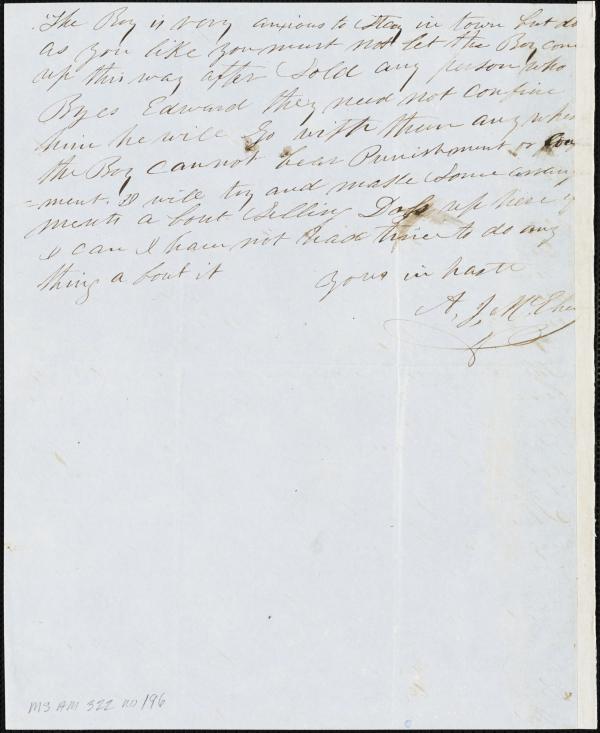 The Boy is very anxious to Stay in town but do
as you like you must not let the Boy com
up this way after Sold any person who
Byes Edward they need not confine
him he will Go with them any wher
the Boy cannot bear Punishment or
=ment. I will try and make Some arrang
ments a bout Selling up here if
I can I have not had time to do any
thing a bout it
yours in haste
A. J. McElve
MS AM 322 no 196